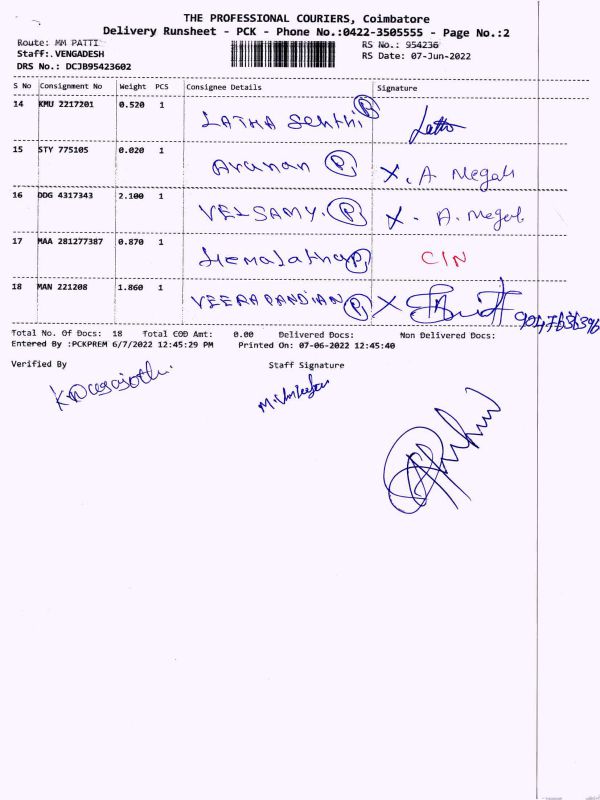 THE PROFESSIONAL COURIERS, Coimbatore
Delivery Runsheet - PCK - Phone No.:0422-3505555 - Page No.:2
Route: MM PATTI RS No.: 954236
Staff: VENGADESH RS Date: 07-Jun-2022
DRS No.: DCJB95423602
S No Consignment No Weight PCS Consignee Details Signature
14 KMU 2217201 0.520 1 LATHA Senthi P Latha
15 STY 775105 0.020 1 Arunan P X. A Megali
16 DDG 4317343 2.100 1 VELSAMY. P X. A. Megal
17 MAA 281277387 0.870 1 Hemalatha P C/N
18 MAN 221208 1.860 1 VEERAPANDIAN P X
Total No. Of Docs: 18 Total COD Amt: 0.00 Delivered Docs: Non Delivered Docs:
Entered By :PCKPREM 6/7/2022 12:45:29 PM Printed On: 07-06-2022 12:45:40
Verified By Staff Signature